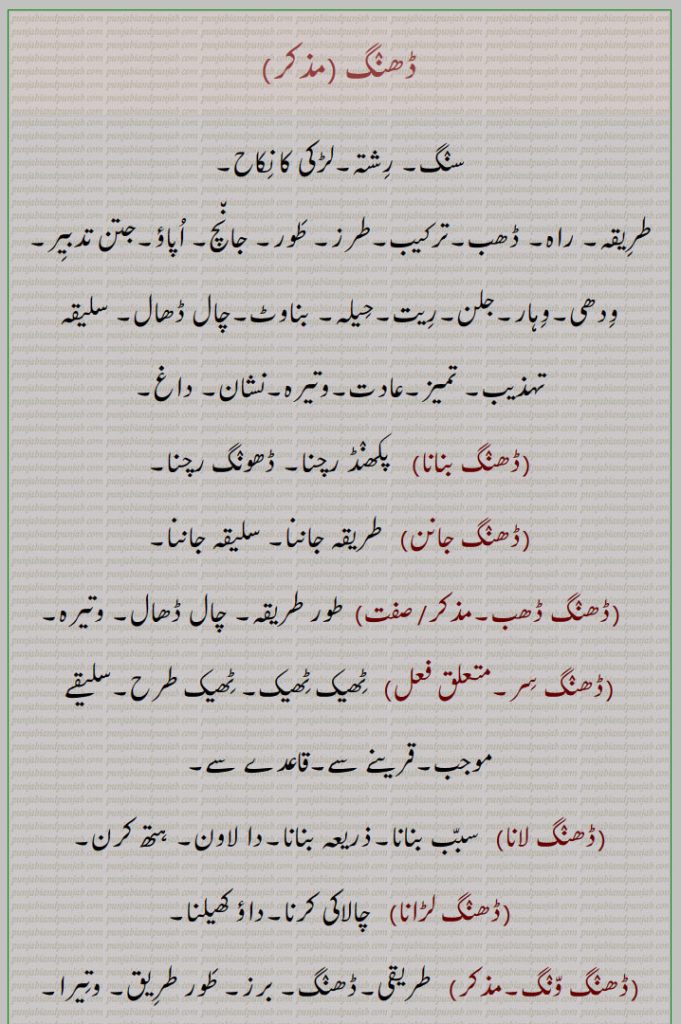 ڈھنگ (مذکر)
سنگ۔ رِشتہ۔ لڑکی کا نِکاح۔
طرِیقہ۔ راہ۔ ڈھب۔ ترکیب۔ طرز۔ طَور۔ جانّچ۔ اُپاؤ۔ جتن تدبیِر۔
وِدھی۔ وِہار۔ جلن۔ رِیت۔ حِیلہ۔ بناوٹ۔ چال ڈھال۔ سلیقہ
تہذیب۔ تمیز۔ عادت۔ وتیرہ۔ نشان۔ داغ۔
(ڈھنگ بنانا) پکھنڈ رچنا۔ ڈھونگ رچنا۔
(ڈھنگ جانن) طریقہ جاننا۔ سلیقہ جاننا۔
(ڈھنگ ڈھب۔ مذکر/ صفت) طور طریقہ۔ چال ڈھال۔ وتیرہ۔
(ڈھنگ سِر۔ متعلق فعل) ٹِھیک ٹِھیک۔ ٹِھیک طرح۔ سلیقے
موجب۔ قرینے سے۔ قاعدے سے۔
(ڈھنگ لانا) سببّ بنانا۔ ذریعہ بنانا۔ دا لاون۔ ہتھ کرن۔
(ڈھنگ لڑانا) چالاکی کرنا۔ داؤ کھیلنا۔
(ڈھنگ وّنگ۔ مذکر) طریقی۔ ڈھنگ۔ برز۔ طَور طرِیق۔ وتِیرا۔